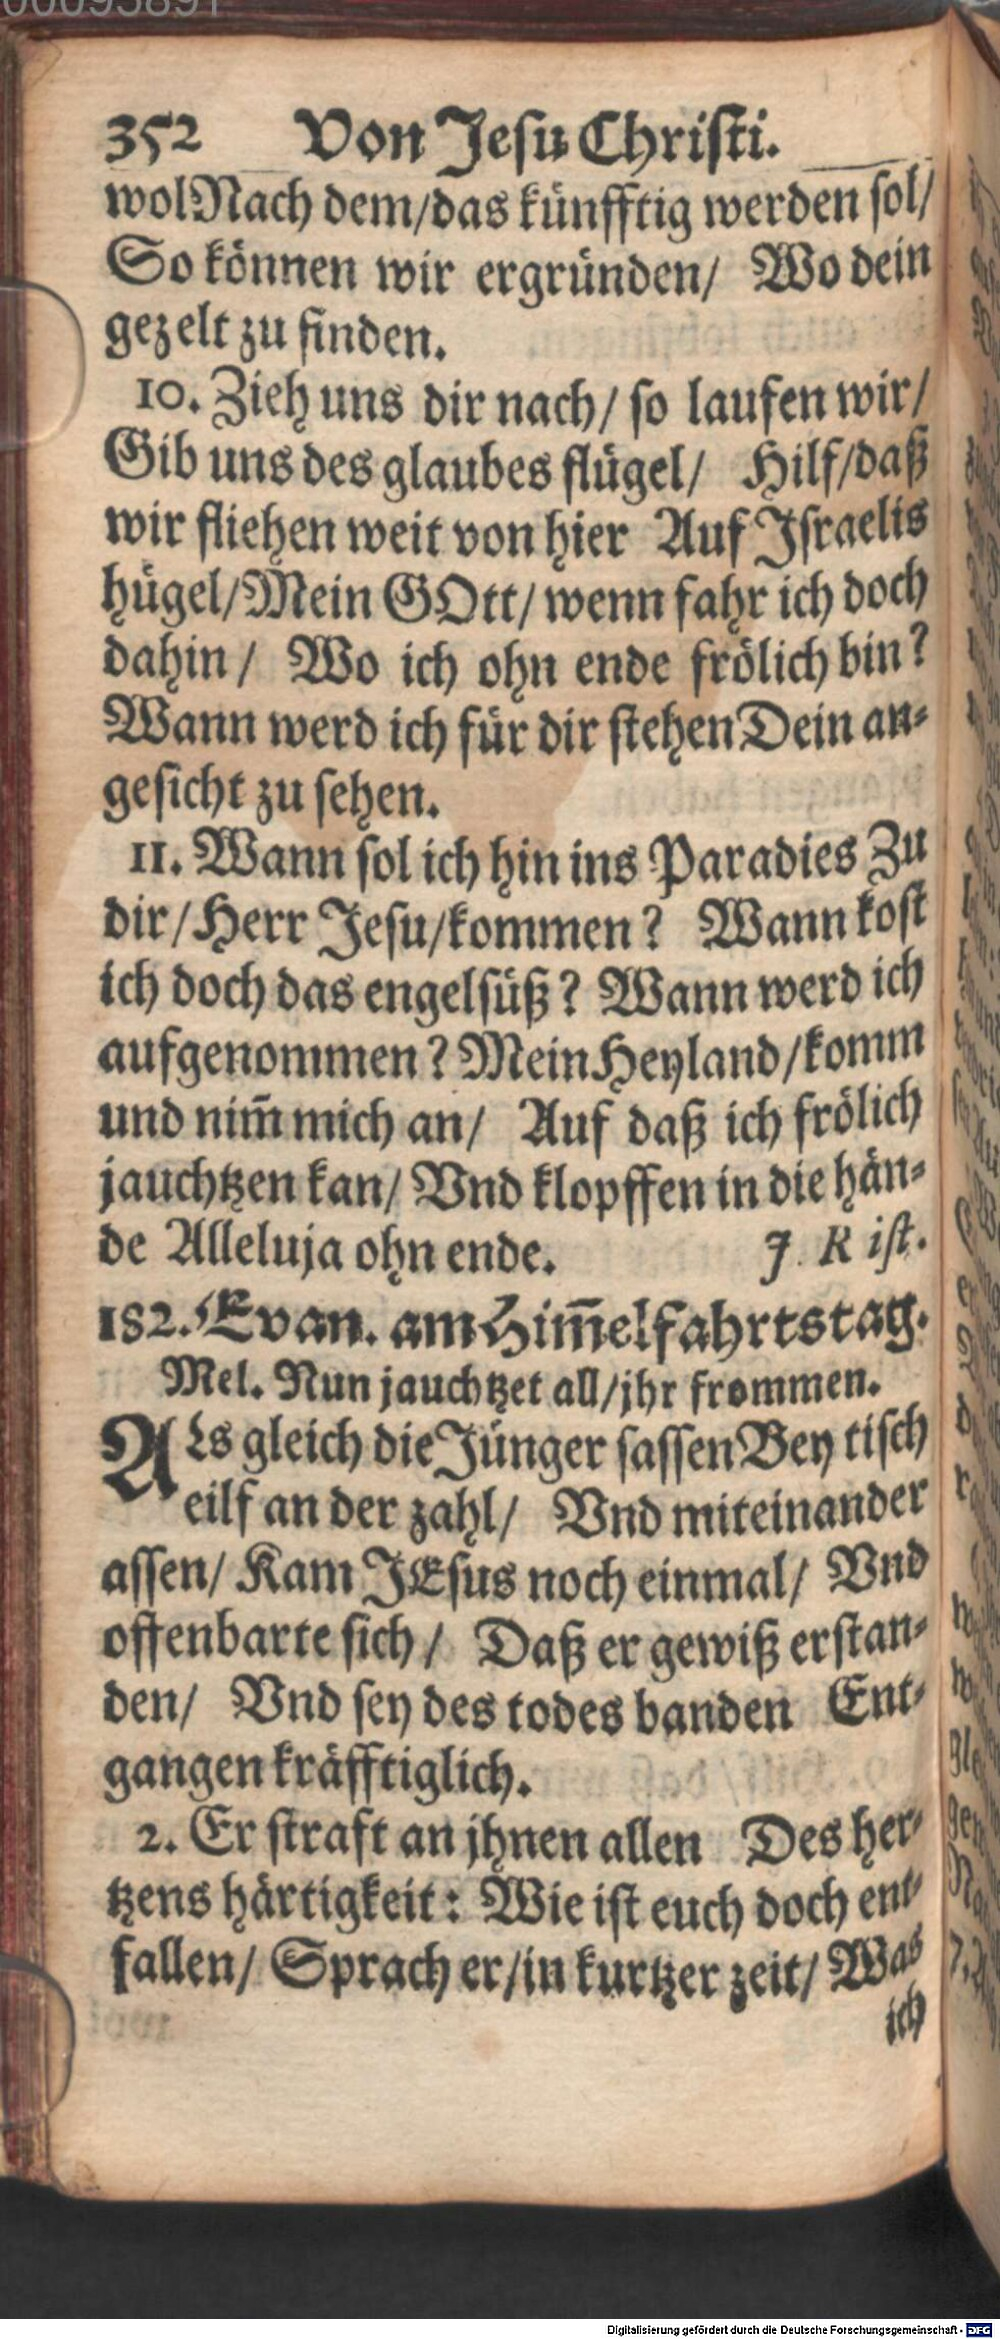 00093891
352 Von Jeſu Chriſti.
wol Nach dem/das künfftig werden ſol/
So können wir ergründen/ Wo dein
gezelt zu finden.
10. Zieh uns dir nach/ ſo laufen wir/
Gib uns des glaubes flügel/ Hilf/daß
wir fliehen weit von hier Auf Iſraelis
hügel/Mein GOtt/ wenn fahr ich doch
dahin/ Wo ich ohn ende frölich bin?
Wann werd ich für dir ſtehen Dein an⸗
geſicht zu ſehen.
11. Wann ſol ich hin ins Paradies Zu
dir/Herr Jeſu/kommen? Wann koſt
ich doch das engelſüß? Wann werd ich
aufgenommen? Mein Heyland/komm
und nim̃ mich an/ Auf daß ich frölich
jauchtzen kan/ Vnd klopffen in die hän⸗
de Alleluja ohn ende. J. Riſt.
182. Evan. am Him̃elfahrtstag.
Mel. Nun jauchtzet all/jhr frommen.
ALs gleich die Jünger ſaſſen Bey tiſch
eilf an der zahl/ Vnd miteinander
aſſen/ Kam JEſus noch einmal/ Vnd
offenbarte ſich/ Daß er gewiß erſtan⸗
den/ Vnd ſey des todes banden Ent⸗
gangen kräfftiglich.
2. Er ſtraft an jhnen allen Des her⸗
tzens härtigkeit: Wie iſt euch doch ent⸗
fallen/ Sprach er/in kurtzer zeit/ Was
ich
Digitalisierung gefördert durch die Deutsche Forschungsgemeinschaft - DFG